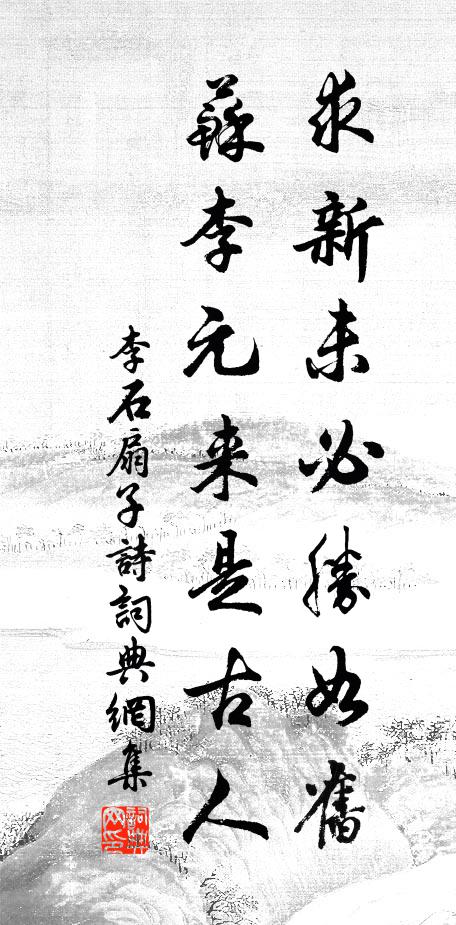 求新未必勝如舊
蘇李元来是古人
李石扇子詩詞典網集